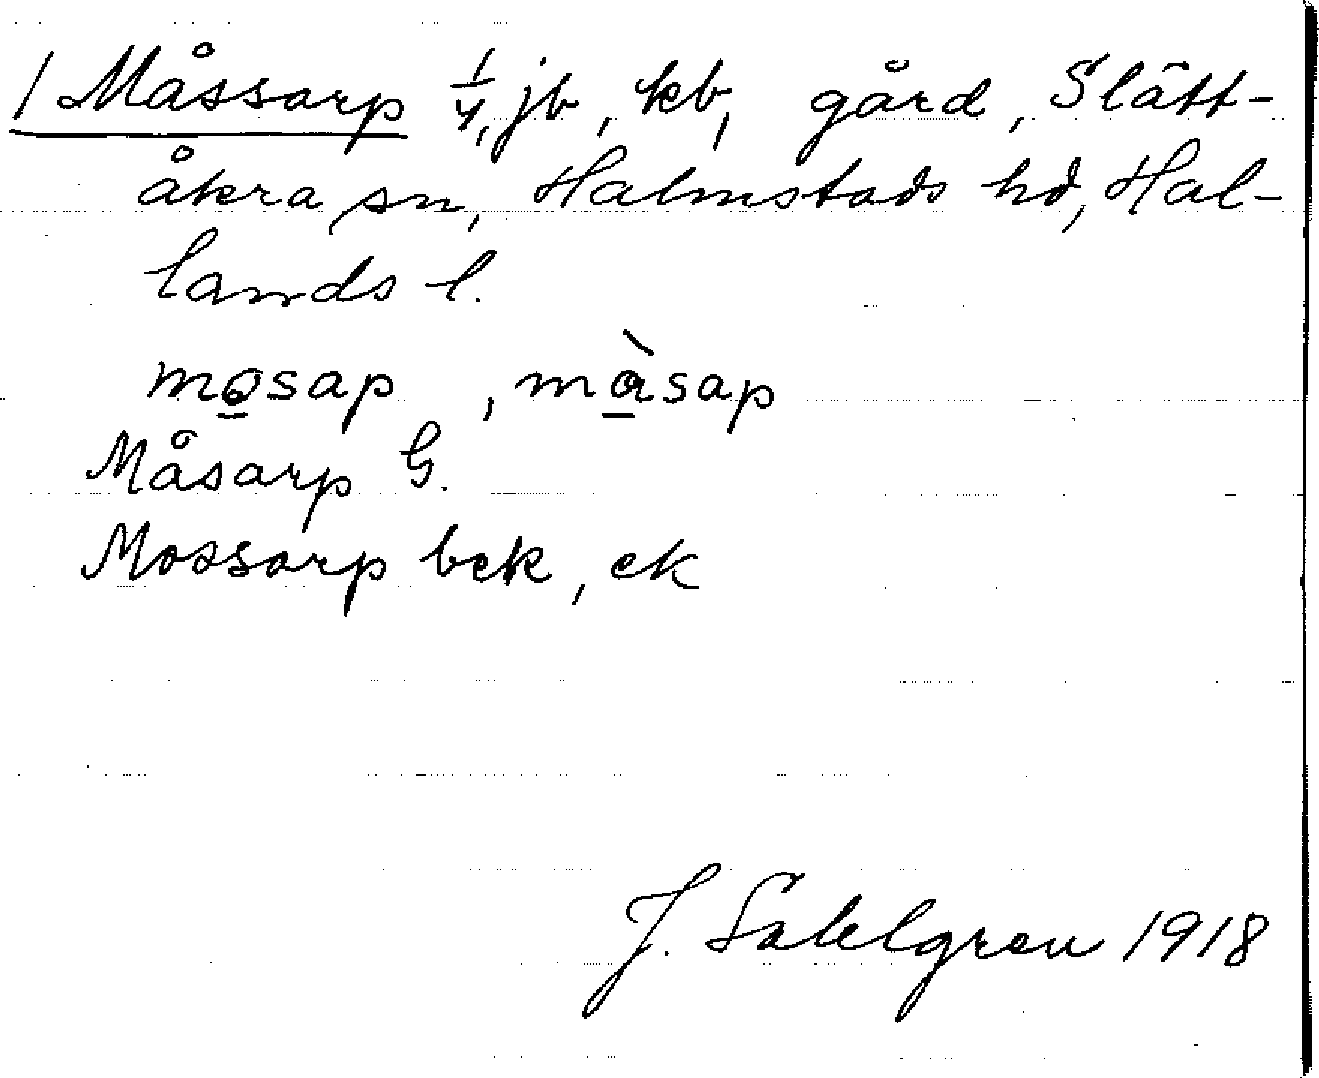 1 Måssarp 1/4, jb, kb, gård, Slätt-
åkra sn, Halmstads hd, Hal-
lands l.
mo̲sap, mà̲sap
Måsarp G.
Mossarp bek, ek
J. Sahlgren 1918